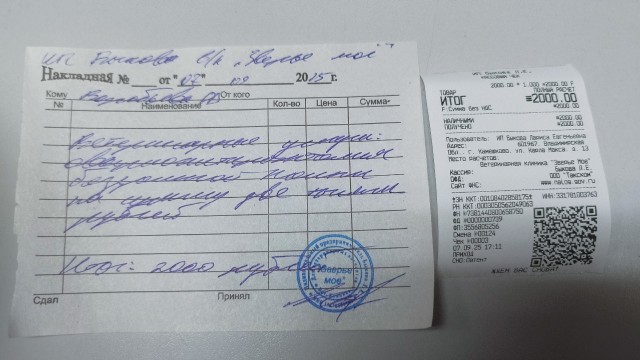 ИП Быкова в/к "Зверье моё"
Накладная № от "07" 09 2025 г.
Кому От кого
№ Наименование Кол-во Цена Сумма
Ветеринарные услуги:
бездомной кошки
на сумму две тысячи
рублей
Итог: 2000 рублей
"Зверье
моё"
Сдал Принял
ИП БЫКОВА Л.Е.
КАССОВЫЙ ЧЕК
2000.00 * 1.000 =2000.00
ТОВАР ПОЛНЫЙ РАСЧЕТ
ИТОГ =2000.00
Сумма без НДС =2000.00
НАЛИЧНЫМИ =2000.00
ПОЛУЧЕНО =2000.00
Пользователь: ИП Быкова Лариса Евгеньевна
Адрес: 601967, Владимирская
Обл., г. Камешково, ул. Карла Маркса, д. 13
Место расчетов:
Ветеринарная клиника "Зверье Мое"
Кассир: Быкова Л.Е.
ОФД: ООО "Такском"
Сайт ФНС: www.nalog.gov.ru
Смена №00124
Чек №00003
07.09.25 17:11
ПРИХОД
СНО:Патент
ЖДЕМ ВАС СНОВА!